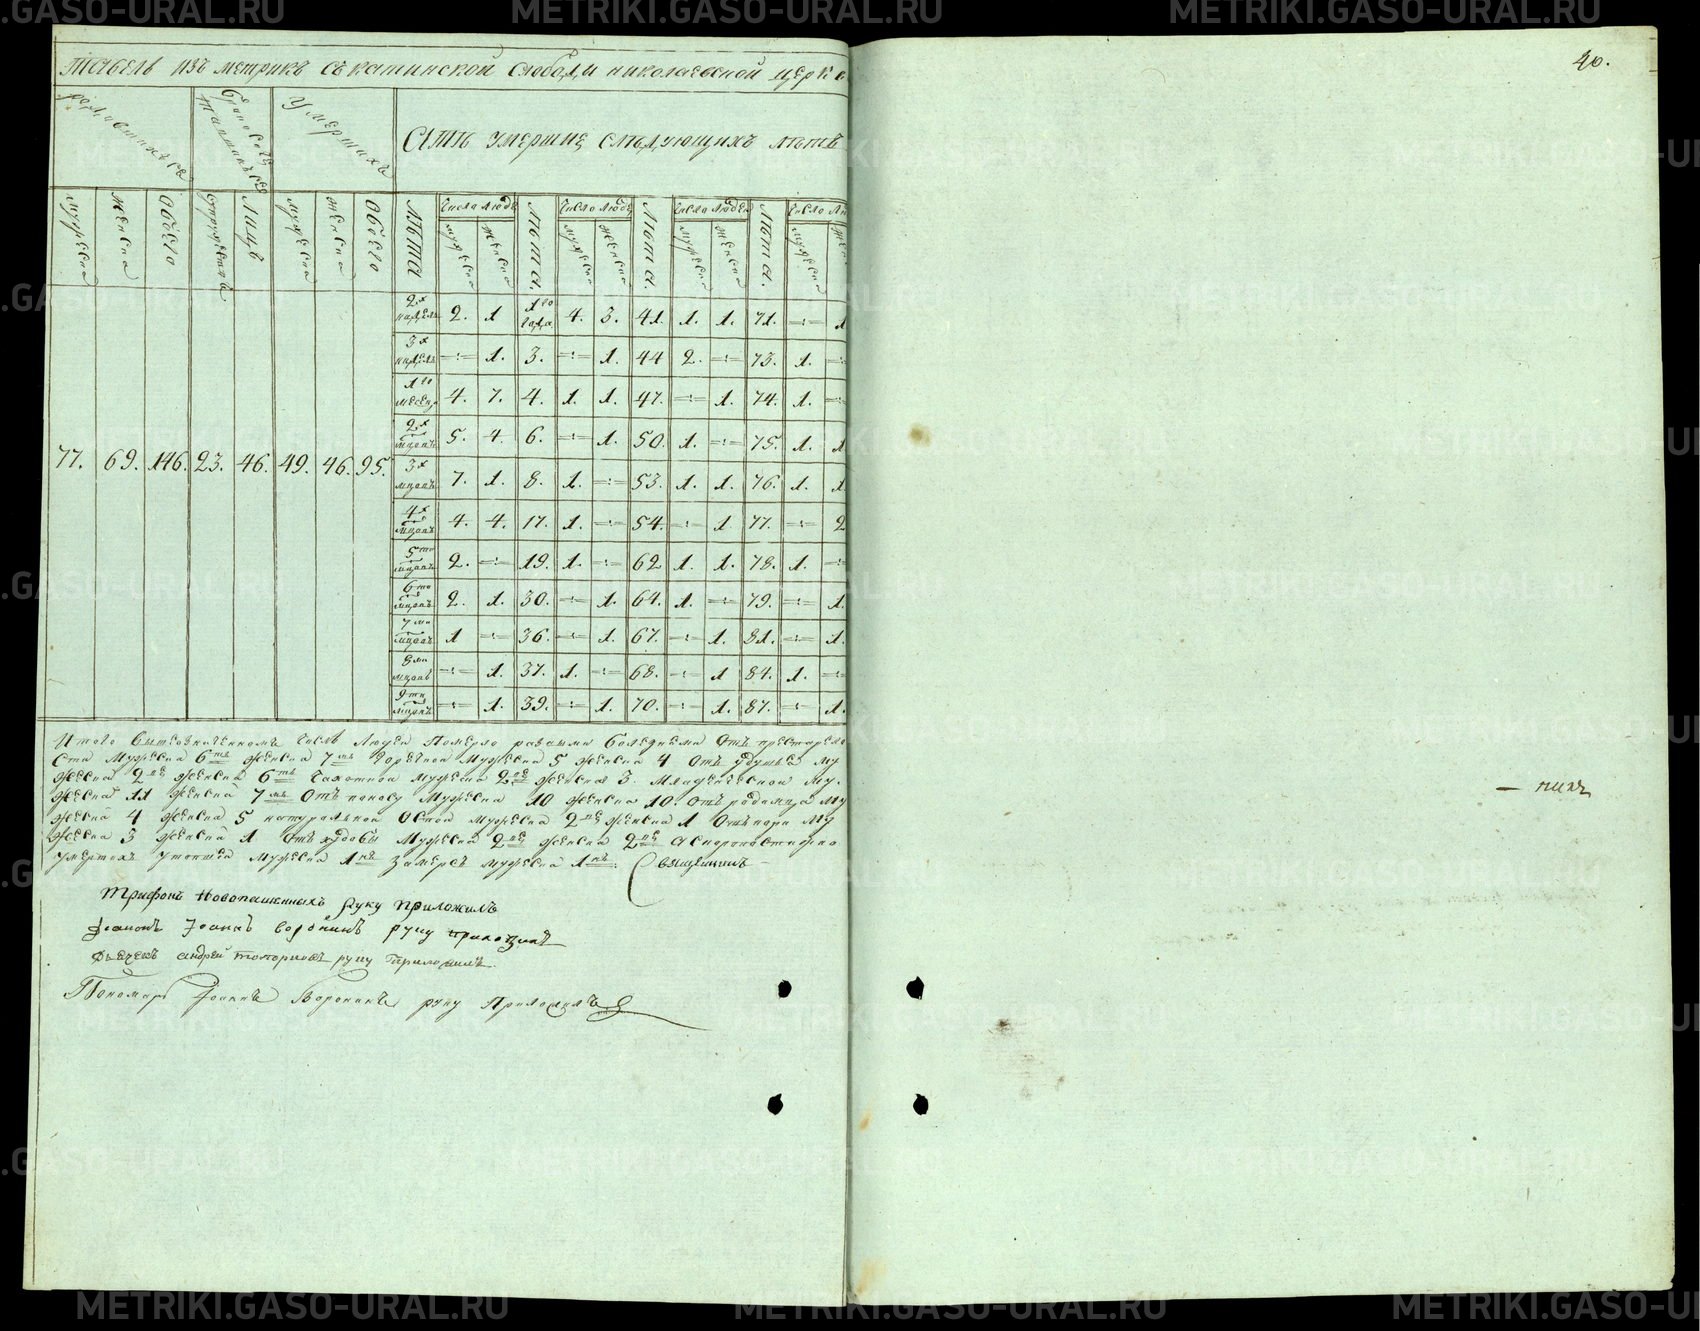 Табель изъ метрикъ съкатинской слободи николаевской церкв
родившихъся
браковсоче
тавшихъся
Умершихъ
Сіть умершие слѣдующихъ лѣтъ
мужеска
женска
Обоего
супружества
Лицъ
мужеска
женска
Обоего
Лѣта
Число люде
мужеска
женска
Лѣта.
Число люде
мужеска
женска
Лѣта.
Число людей
мужеска
женска
Лѣта.
Число лю
мужеска
77. 69. 146. 23. 46. 49. 46. 95.
2х недель 2. 1 1го года 4. 3. 41. 1. 1. 71. -:- 1
3х недель -:- 1. 3. -:- 1. 44 2. -:- 73. 1. -:-
1го 4. 7. 4. 1. 1. 47. -:- 1. 74. 1. -:-
2х мцовъ 5. 4. 6. -:- 1. 50. 1. -:- 75. 1. 1
3х мцовъ 7. 1. 8. 1. -:- 53. 1. 1. 76. 1. 1.
4х мцовъ 4. 4. 17. 1. -:- 54. -:- 1 77. -:- 2
5ти мцовъ 2. -:- 19. 1. -:- 62 1. 1. 78. 1. -:-
6ти мцовъ 2. 1. 30. -:- 1. 64. 1. -:- 79. -:- 1.
7ми мцовъ 1 -:- 36. -:- 1. 67. -:- 1. 81. -:- 1.
8ми мцовъ -:- 1. 37. 1. -:- 68. -:- 1 84. 1. -:-
9ти мцовъ -:- 1. 39. -:- 1. 70. -:- 1. 87. -:- 1.
Итого вышезначенномъ числѣ людей Померло разными болезнеми Отъ престарело
сти Мужеска 6ть женска 7мь Горячкой Мужеска 5 женска 4 Отъ удушья Му
жеска 2ве женска 6ть Чахоткой мужеска 2ве женска 3. Младенческой му
жеска 11 женска 7мь Отъ поносу Мужеска 10 женска 10. Отъ родимца Му
жеска 4 женска 5 натуральной Оспой мужеска 2ве женска 1 Му
жеска 3 женска 1 отъ худобы Мужеска 2ве женска 2ве Аскоропостижно
умертвъ утопшеа мужеска 1нъ замерзъ мужеска 1нъ. (Священникъ
Трифонъ Новопашенныхъ руку Приложилъ
Діаконъ Іоаннъ воронинъ руку приложилъ
Дьячекъ андрей топорковъ руку приложилъ.
Пономарь Іоаннъ Воронинъ руку Приложилъ
40.
— никъ
METRIKI.GASO-URAL.RU